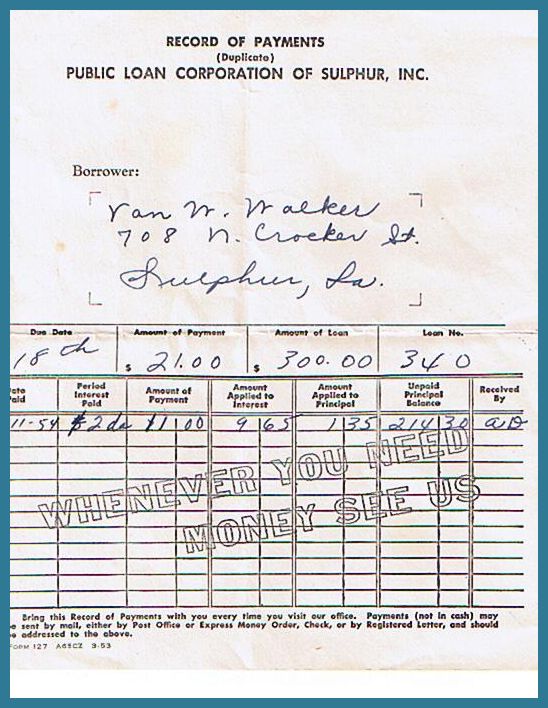 RECORD OF PAYMENTS
(Duplicate)
PUBLIC LOAN CORPORATION OF SULPHUR, INC.
Borrower:
Van W. Walker
708 N. Crocker St.
Sulphur, La.
Due Date Amount of Payment Amount of Loan Loan No.
18th $ 21.00 $ 300.00 340
ate aid Period Interest Paid Amount of Payment Amount Applied to Interest Amount Applied to Principal Unpaid Principal Balance Received By
11-54 2 da 11 00 9 65 1 35 214 30
WHENEVER YOU NEED
MONEY SEE US
Bring this Record of Payments with you every time you visit our office. Payments (not in cash) may
e sent by mail, either by Post Office or Express Money Order, Check, or by Registered Letter, and should
e addressed to the above.
FORM 127 A65CZ 3-53